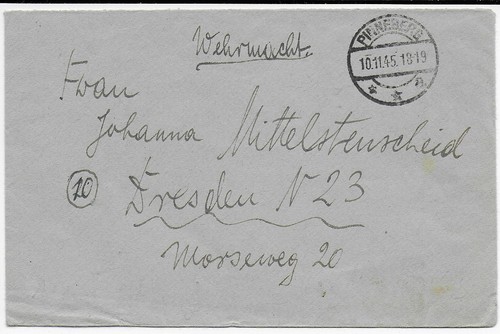 Wehrmacht.
PINNEBERG
10.11.45.18-19
* * a
Frau
Johanna Mittelstenscheid
10 Dresden N 23
Morseweg 20